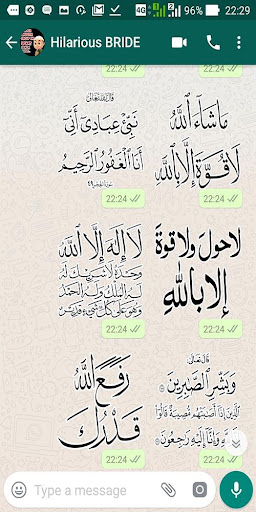 4G 86% 22:29
Hilarious BRIDE
22:24
22:24
قَالَ اللهُ تَعَالَى
نَبِّئْ عِبَادِي أَنِّي
أَنَا الْغَفُورُ الرَّحِيمُ
22:24
مَا شَآءَ ٱللَّهُ
لَا قُوَّةَ إِلَّا بِٱللَّهِ
22:24
لَا إِلَهَ إِلَّا اللهُ
وَحْدَهُ لَا شَرِيكَ لَهُ
لَهُ الْمُلْكُ وَلَهُ الْحَمْدُ
وَهُوَ عَلَى كُلِّ شَيْءٍ قَدِيرٌ
22:24
لا حول ولا قوة
إلا بالله
22:24
رَفَعَ اللهُ
قَدْرَكَ
22:24
قَالَ تَعَالَى
وَبَشِّرِ ٱلصَّٰبِرِينَ
ٱلَّذِينَ إِذَآ أَصَٰبَتْهُم مُّصِيبَةٌ قَالُوٓا۟
إِنَّا لِلَّهِ وَإِنَّآ إِلَيْهِ رَٰجِعُونَ
22:24
Type a message